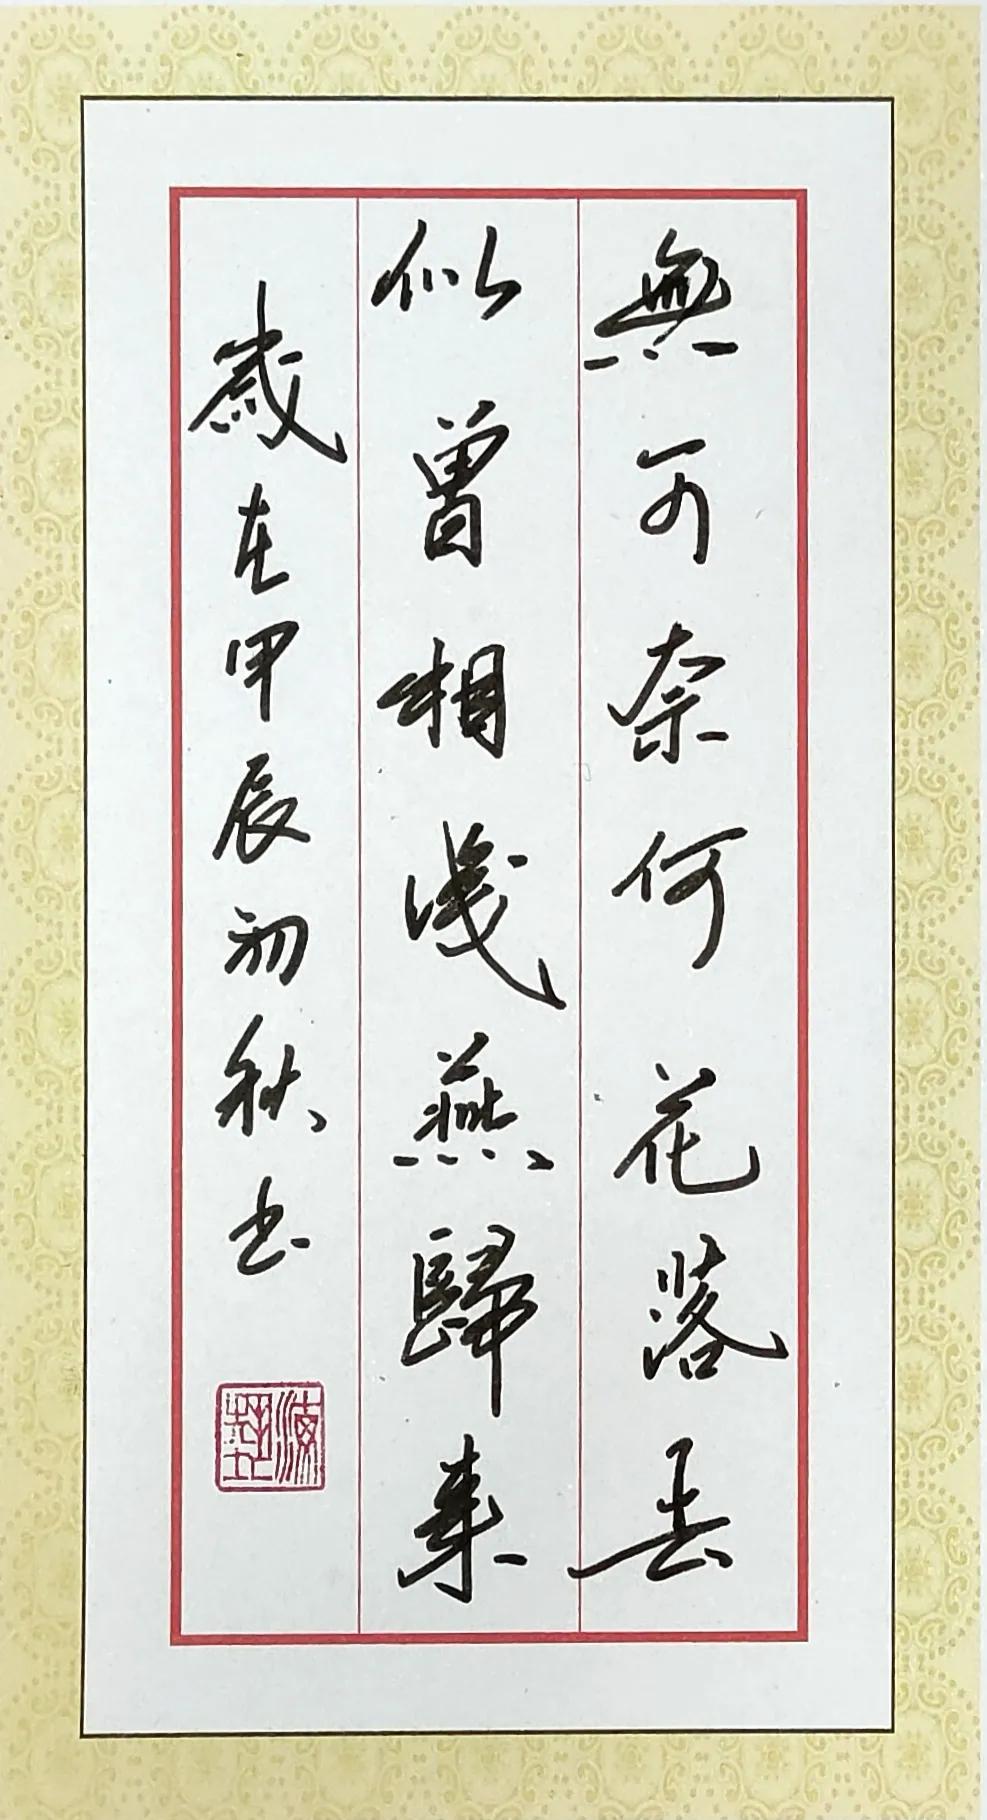 無可奈何花落去
似曾相識燕歸來
歲在甲辰初秋书